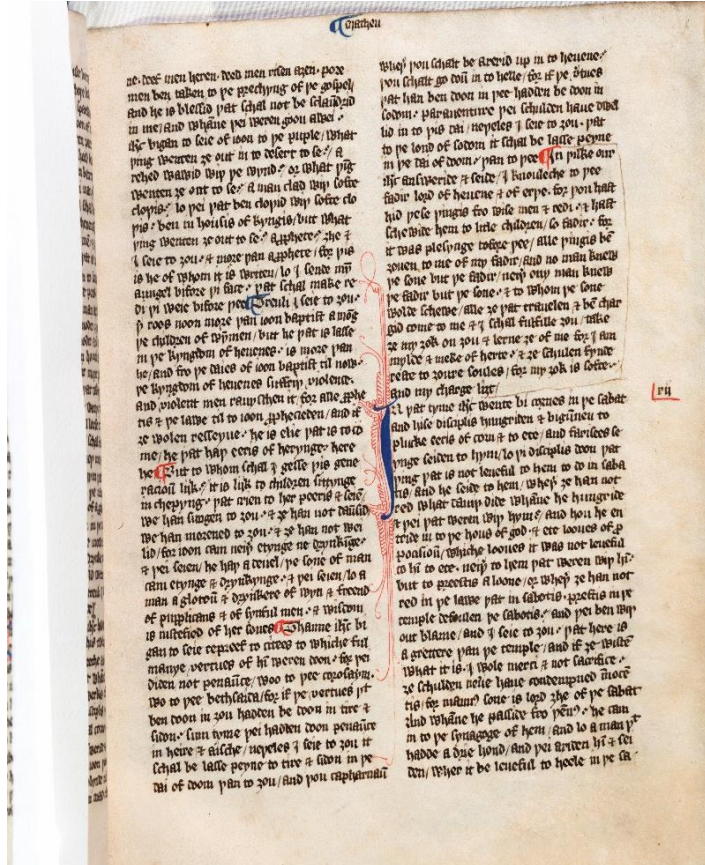 Matheu
ne. deef men heren. deed men risen aȝen. pore
men ben taken to þe prechyng of þe gospel/
and he is blessid þat schal not be sclaundrid
in me/ and whāne þei weren goon awei.
ihc bigan to seie of ioon to þe puple/ what
þing wenten ȝe out in to desert to se?/ a
rehed wawid wiþ þe wynd? or what þīg
wenten ȝe out to se? a man clad wiþ softe
cloþis. lo þei þat ben cloþid wiþ softe clo
þis. ben in housis of kyngis/ but what
þing wenten ȝe out to se? a pphete? ȝhe ⁊
I seie to ȝou. ⁊ more þan a pphete/ for þis
is he of whom it is writen/ lo I sende mȳ
aungel bifore þi face. þat schal make re
di þi weie bifore þee Treuli I seie to ȝou.
þ roos noon more þan ioon baptist amōg
þe children of wȳmen/ but he þat is lasse
in þe kyngdom of heuenes. is more þan
he/ and fro þe daies of ioon baptist til now.
þe kyngdom of heuenes suffriþ violence.
and violent men rauyschen it/ for alle pphe
tis ⁊ þe lawe til to ioon ppheceden/ and if
ȝe wolen resseyue. he is elie þat is to cō
me/ he þat haþ eeris of herynge. here
he But to whom schal I gesse þis gene
racioū lijk? it is lijk to children sittynge
in chepyng. þat crien to her peeris ⁊ seiē
we han sungen to ȝou. ⁊ ȝe han not daūsid
we han morened to ȝou. ⁊ ȝe han not wei
lid/ for ioon cam neiþ etynge ne drynkīge.
⁊ þei seien/ he haþ a deuel/ þe sone of man
cam etynge ⁊ drynkynge. ⁊ þei seien/ lo a
man a glotoū ⁊ drynkere of wyn ⁊ freend
of pupplicans ⁊ of synful men. ⁊ wisdom
is iustefied of her sones Thanne ihc bi
gan to seie repreef to citees to whiche ful
manye vertues of hī weren doon. for þei
diden not penaūce/ woo to þee corosaym.
wo to þee bethsaida/ for if þe vertues þt
ben doon in ȝou hadden be doon in tire ⁊
sidon. sum tyme þei hadden doon penaūce
in heire ⁊ aische/ neþeles I seie to ȝou it
schal be lasse peyne to tire ⁊ sidon in þe
dai of doom þan to ȝou/ and þou capharnaū
wheþ þou schalt be arerid up in to heuene?
þou schalt go doū in to helle/ for if þe vertues
þat han ben doon in þee hadden be doon in
sodom. parauenture þei schulden haue dwel
lid in to þis dai/ neþeles I seie to ȝou. þat
to þe lond of sodom it schal be lasse peyne
in þe dai of doom. þan to þee In þilke our
ihc answeride ⁊ seide/ I knouleche to þee
fadir lord of heuene ⁊ of erþe. for þou hast
hid þese þingis fro wise men ⁊ redi. ⁊ hast
schewide hem to litle children/ so fadir. for
it was plesynge tofore þee/ alle þingis bē
ȝouen to me of my fadir/ and no man knew
þe sone but þe fadir/ neiþ ony man knew
þe fadir but þe sone. ⁊ to whom þe sone
wolde schewe/ alle ȝe þat trauelen ⁊ bē char
gid come to me ⁊ I schal fulfille ȝou/ take
ȝe my ȝok on ȝou ⁊ lerne ȝe of me for I am
mylde ⁊ meke of herte. ⁊ ȝe schulen fynde
reste to ȝoure soules/ for my ȝok is softe.
and my charge liȝt/
xii
In þat tyme ihc wente bi cornes in þe sabat
and hise disciplis hungriden ⁊ bigūnen to
plucke eeris of corn ⁊ to ete/ and farisees se
ynge seiden to hym/ lo þi disciplis doon þat
þing þat is not leueful to hem to do in saba
tis/ and he seide to hem/ wheþ ȝe han not
red what dauiþ dide whāne he hungride
⁊ þei þat weren wiþ hym? and hou he en
tride in to þe hous of god. ⁊ ete looues of p
posicioū/ whiche looues it was not leueful
to hī to ete. neiþ to hem þat weren wiþ hī.
but to preestis aloone/ or wheþ ȝe han not
red in þe lawe þat in sabotis. preestis in þe
temple defoulen þe sabotis. and þei ben wiþ
out blame/ and I seie to ȝou. þat here is
a grettere þan þe temple/ and if ȝe wistē
what it is. I wole merci ⁊ not sacrifice.
ȝe schulden neuere haue condempned īnocē
tis/ for mannꝰ sone is lord ȝhe of þe sabat
And whāne he passide fro þēnꝰ. he cam
in to þe synagoge of hem/ and lo a man þt
hadde a drie hond/ and þei axiden hī ⁊ sei
den/ wher it be leueful to heele in þe sa